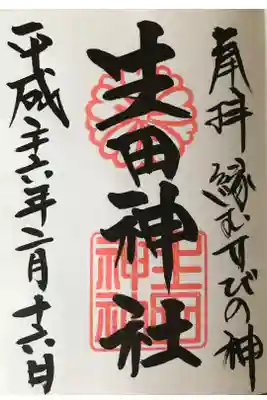 奉拝 縁むすびの神
生田神社
生田神社
平成二十六年二月十六日